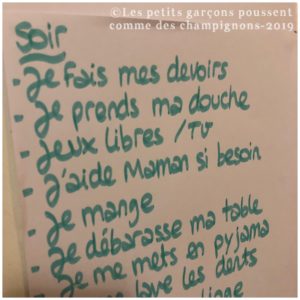 ©Les petits garçons poussent
comme des champignons-2019
Soir
- Je fais mes devoirs
- Je prends ma douche
- Jeux libres / TV
- J'aide Maman si besoin
- Je mange
- Je débarasse ma table
- Je me mets en pyjama
lave les dents